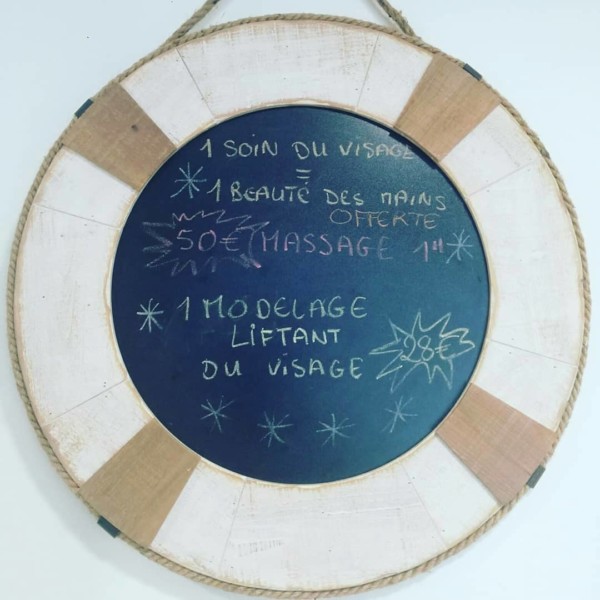 1 SOIN DU VISAGE
=
1 BEAUTÉ DES MAINS
OFFERTE
50€ MASSAGE 1H
1 MODELAGE
LIFTANT
DU VISAGE 28€